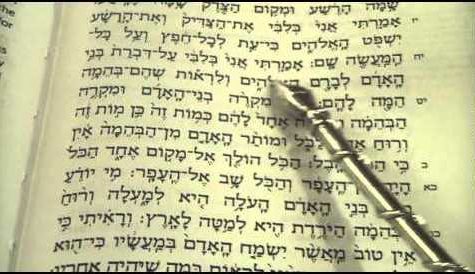 שָׁמָּה הָרֶשַׁע וּמְקוֹם הַצֶּדֶק
אָמַרְתִּי אֲנִי בְּלִבִּי אֶת־הַצַּדִּיק וְאֶת־הָרָשָׁע יז
יִשְׁפֹּט הָאֱלֹהִים כִּי־עֵת לְכָל־חֵפֶץ וְעַל כָּל־
הַמַּעֲשֶׂה שָׁם׃ אָמַרְתִּי אֲנִי בְּלִבִּי עַל־דִּבְרַת בְּנֵי יח
הָאָדָם לְבָרָם הָאֱלֹהִים וְלִרְאוֹת שְׁהֶם־בְּהֵמָה
הֵמָּה לָהֶם׃ מִקְרֶה בְנֵי־הָאָדָם וּמִקְרֶה יט
הַבְּהֵמָה אֶחָד לָהֶם כְּמוֹת זֶה כֵּן מוֹת זֶה
וְרוּחַ וּמוֹתַר הָאָדָם מִן־הַבְּהֵמָה אָיִן
כִּי הָבֶל׃ הַכֹּל הוֹלֵךְ אֶל־מָקוֹם אֶחָד הַכֹּל כ
הָיָה הֶעָפָר וְהַכֹּל שָׁב אֶל־הֶעָפָר׃ מִי יוֹדֵעַ כא
בְּנֵי הָאָדָם הָעֹלָה הִיא לְמָעְלָה וְרוּחַ
הַבְּהֵמָה הַיֹּרֶדֶת הִיא לְמַטָּה לָאָרֶץ׃ וְרָאִיתִי כִּי כב
אֵין טוֹב מֵאֲשֶׁר יִשְׂמַח הָאָדָם בְּמַעֲשָׂיו כִּי־הוּא
לִרְאוֹת בְּמֶה שֶׁיִּהְיֶה אַחֲרָיו׃